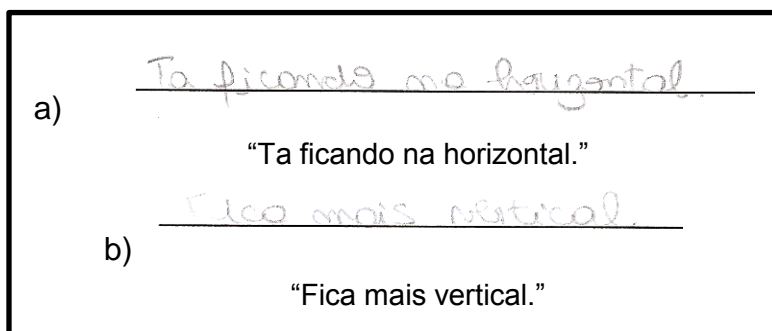 Ta ficando na horizontal.
a)
“Ta ficando na horizontal.”
Fica mais vertical.
b)
“Fica mais vertical.”